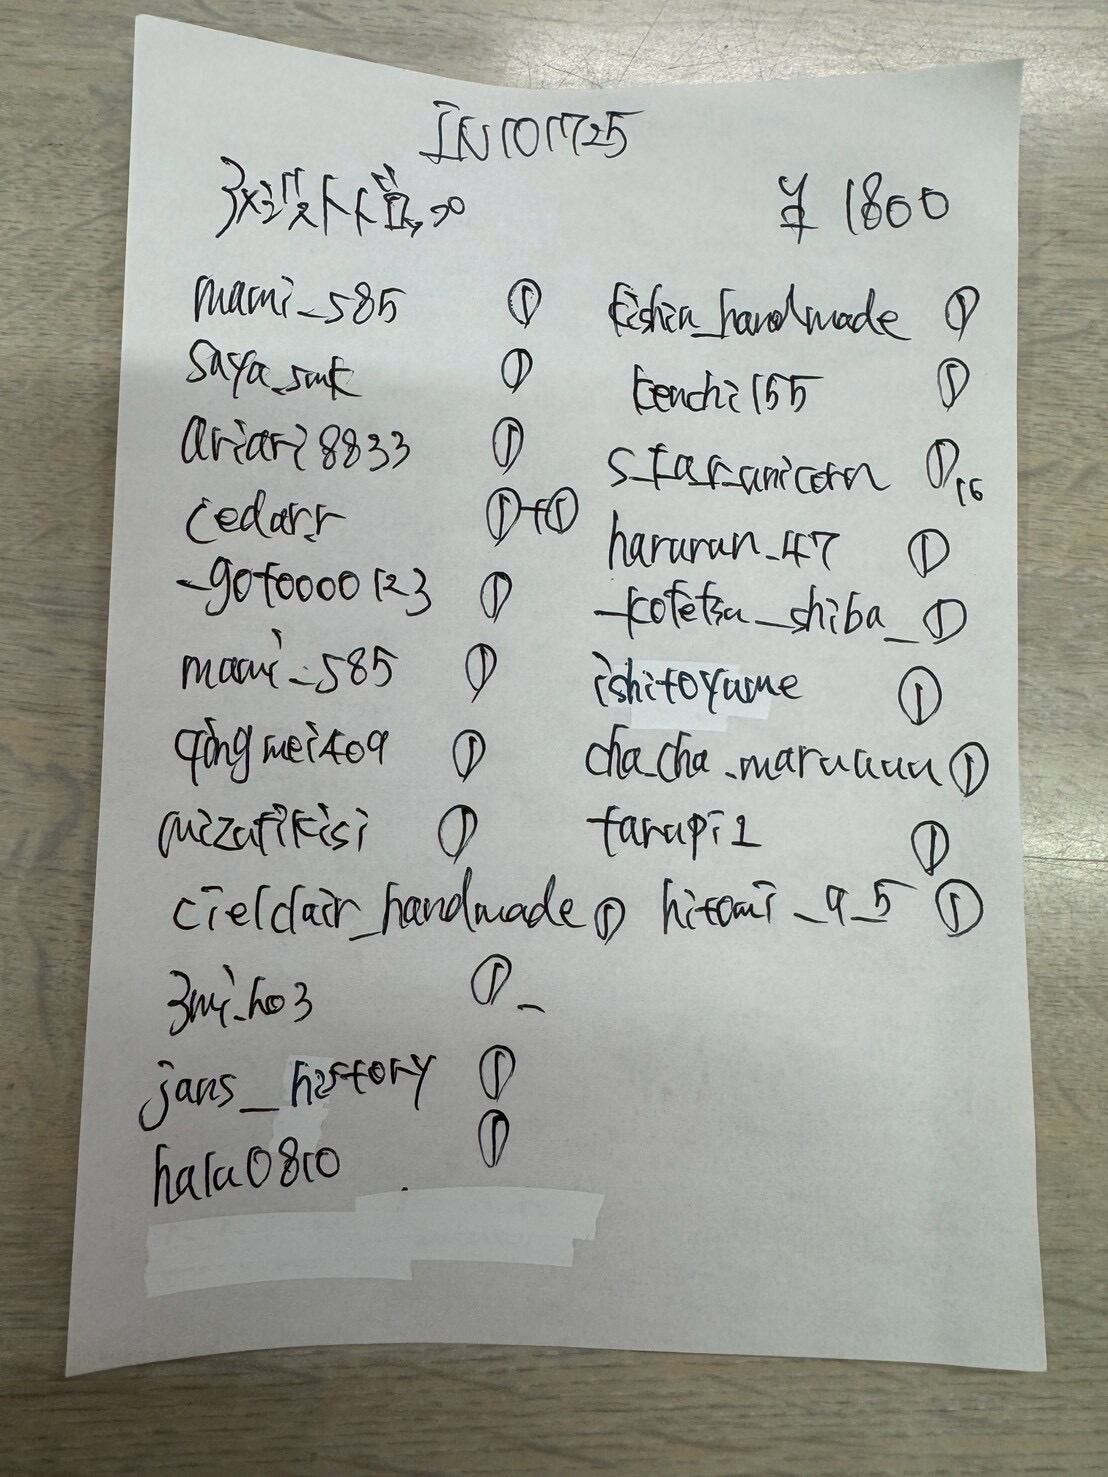 IN101725
¥1800
mami_585 ①
saya_smk ①
ariari8833 ①
cedarr ①+①
_gotoooo123 ①
mami_585 ①
qingmei409 ①
mizutikisi ①
cielclair_handmade ①
3mi_ho3 ①
jans_history ①
halu0810 ①
kishin_handmade ①
kenchi155 ①
s_tar_unicorn ①16
harurun_47 ①
_kotetsu_shiba_ ①
ishitoyume ①
cha_cha_maruuuu ①
tarupi1 ①
hitomi_9_5 ①